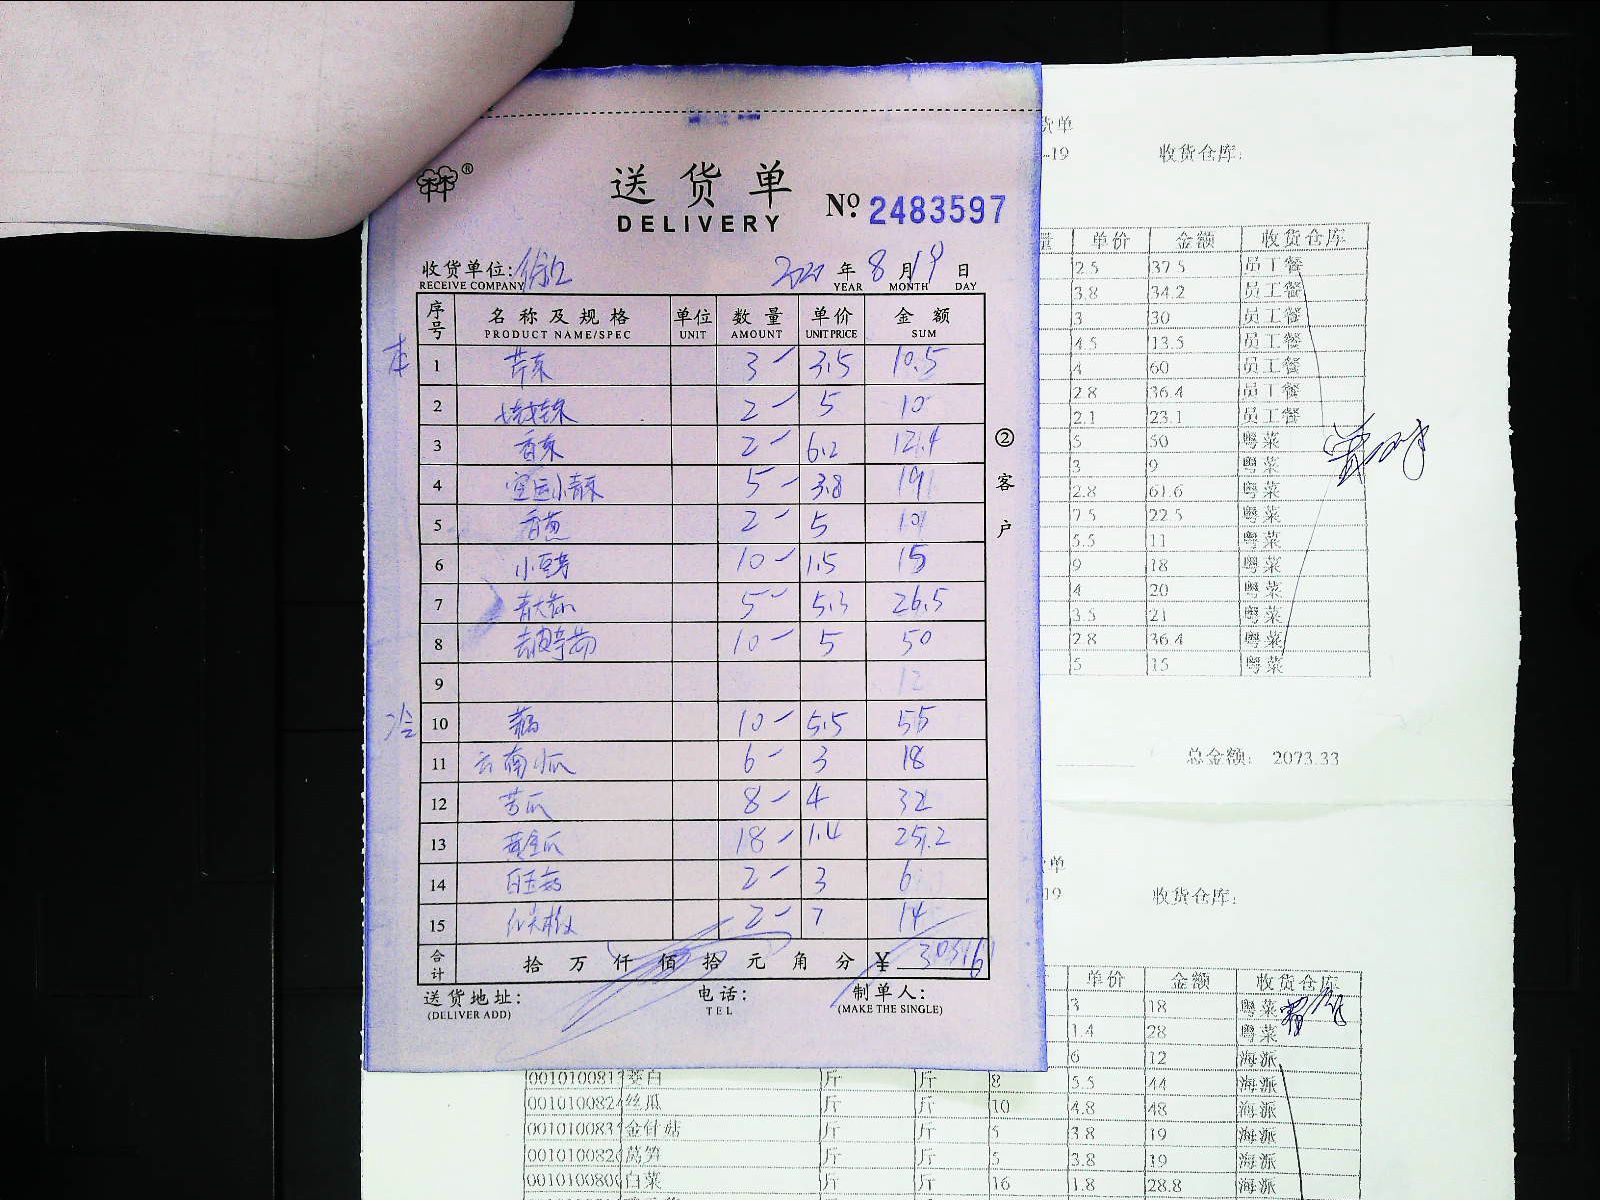 ®
送货单
DELIVERY
№ 2483597
收货单位:
RECEIVE COMPANY
2021 年 8 月 19 日
YEAR MONTH DAY
序号 名称及规格 单位 数量 单价 金额
PRODUCT NAME/SPEC UNIT AMOUNT UNIT PRICE SUM
本
1 芹菜 3 3.5 10.5
2 2 5 10
3 香菜 2 6.2 12.4
4 空运小青菜 5 3.8 19
5 香葱 2 5 10
6 小豆芽 10 1.5 15
7 5 5.3 26.5
8 10 5 50
9 12
冷
10 10 5.5 55
11 云南小瓜 6 3 18
12 苦瓜 8 4 32
13 黄金瓜 18 1.4 25.2
14 白玉菇 2 3 6
15 2 7 14
合计 拾 万 仟 佰 拾 元 角 分 ¥
送货地址: 电话: 制单人:
(DELIVER ADD) TEL (MAKE THE SINGLE)
② 客户
货单
-19 收货仓库:
量 单价 金额 收货仓库
2.5 37.5 员工餐
3.8 34.2 员工餐
3 30 员工餐
4.5 13.5 员工餐
4 60 员工餐
2.8 36.4 员工餐
2.1 23.1 员工餐
5 50 粤菜
3 9 粤菜
2.8 61.6 粤菜
7.5 22.5 粤菜
5.5 11 粤菜
9 18 粤菜
4 20 粤菜
3.5 21 粤菜
2.8 36.4 粤菜
5 15 粤菜
总金额: 2073.33
货单
19 收货仓库:
单价 金额 收货仓库
3 18 粤菜
1.4 28 粤菜
6 12 海派
茭白 斤 斤 8 5.5 44 海派
丝瓜 斤 斤 10 4.8 48 海派
金针菇 斤 斤 5 3.8 19 海派
莴笋 斤 斤 5 3.8 19 海派
白菜 斤 斤 16 1.8 28.8 海派